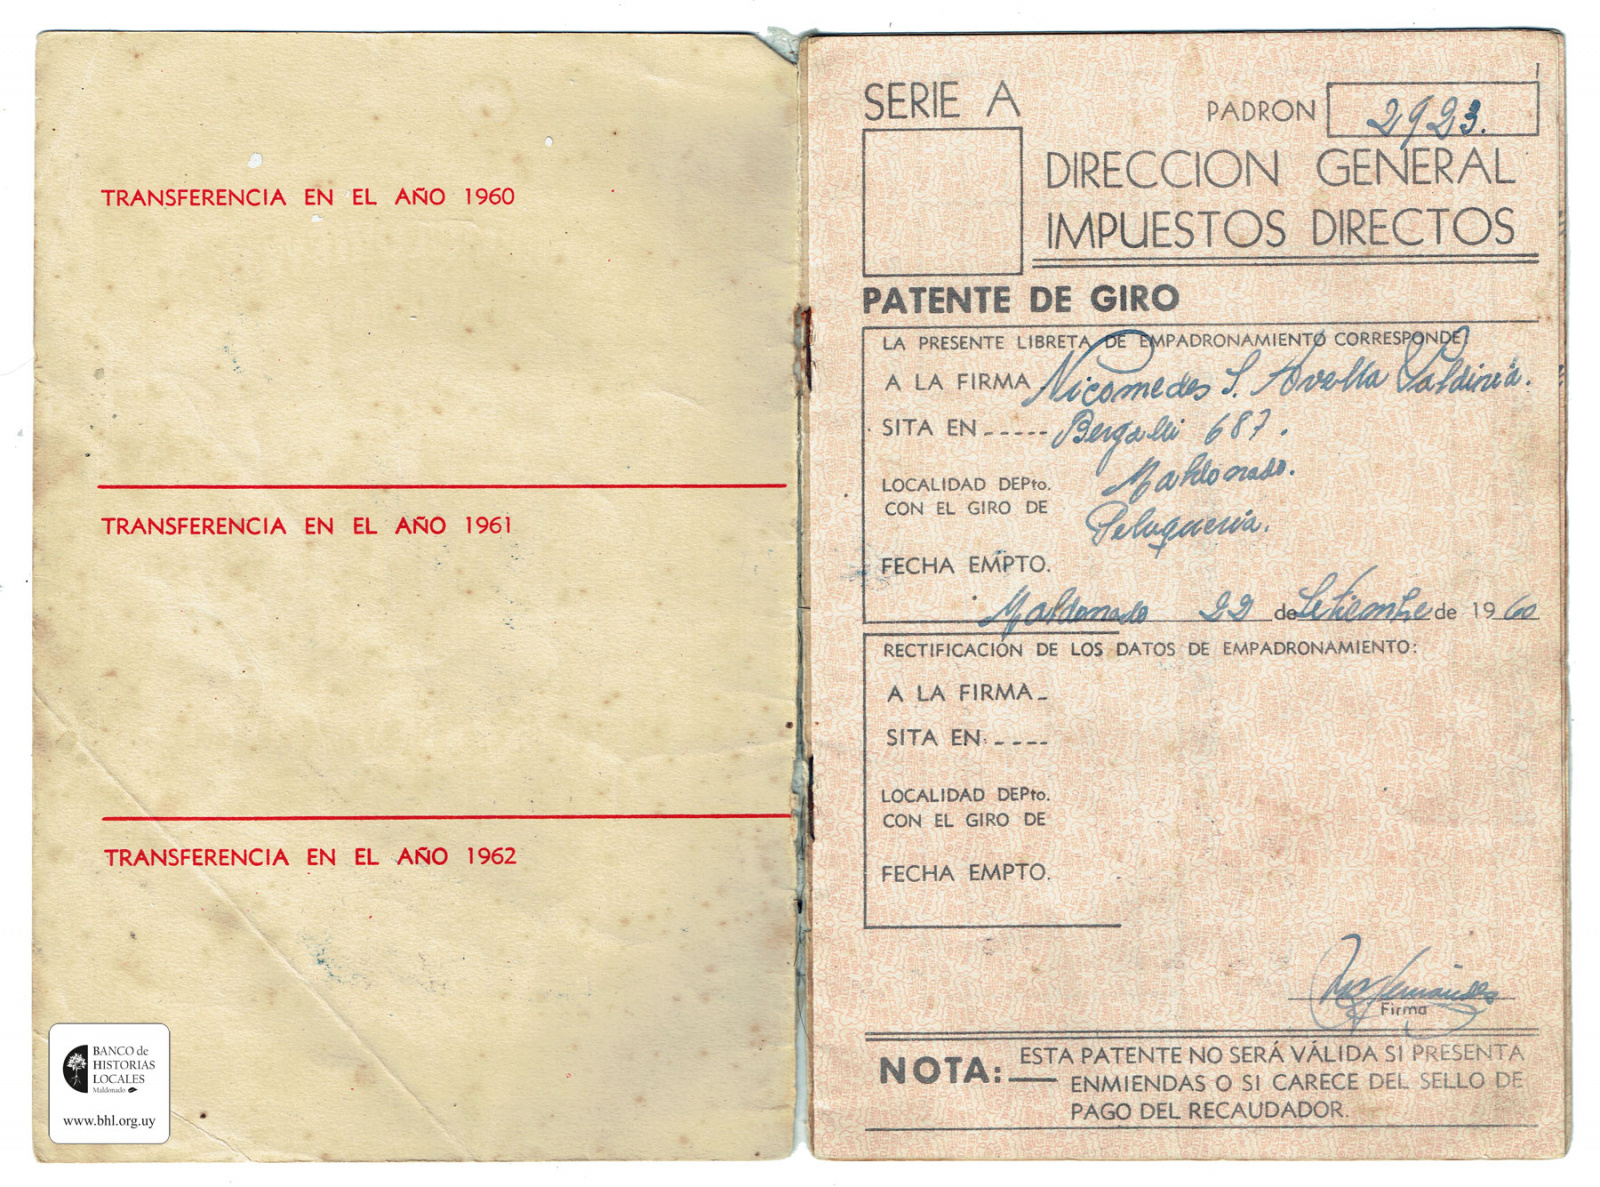 TRANSFERENCIA EN EL AÑO 1960
TRANSFERENCIA EN EL AÑO 1961
TRANSFERENCIA EN EL AÑO 1962
BANCO de
HISTORIAS
LOCALES
Maldonado
www.bhl.org.uy
SERIE A
PADRON 2923.
DIRECCION GENERAL
IMPUESTOS DIRECTOS
PATENTE DE GIRO
LA PRESENTE LIBRETA DE EMPADRONAMIENTO CORRESPONDE:
A LA FIRMA Nicomedes S. Avella
SITA EN ----- Bergalli 687.
LOCALIDAD DEPto. Maldonado.
CON EL GIRO DE Peluqueria.
FECHA EMPTO.
Maldonado 22 de Setiembre de 1960
RECTIFICACIÓN DE LOS DATOS DE EMPADRONAMIENTO:
A LA FIRMA -
SITA EN ----
LOCALIDAD DEPto.
CON EL GIRO DE
FECHA EMPTO.
Firma
NOTA: ESTA PATENTE NO SERÁ VÁLIDA SI PRESENTA
ENMIENDAS O SI CARECE DEL SELLO DE
PAGO DEL RECAUDADOR.